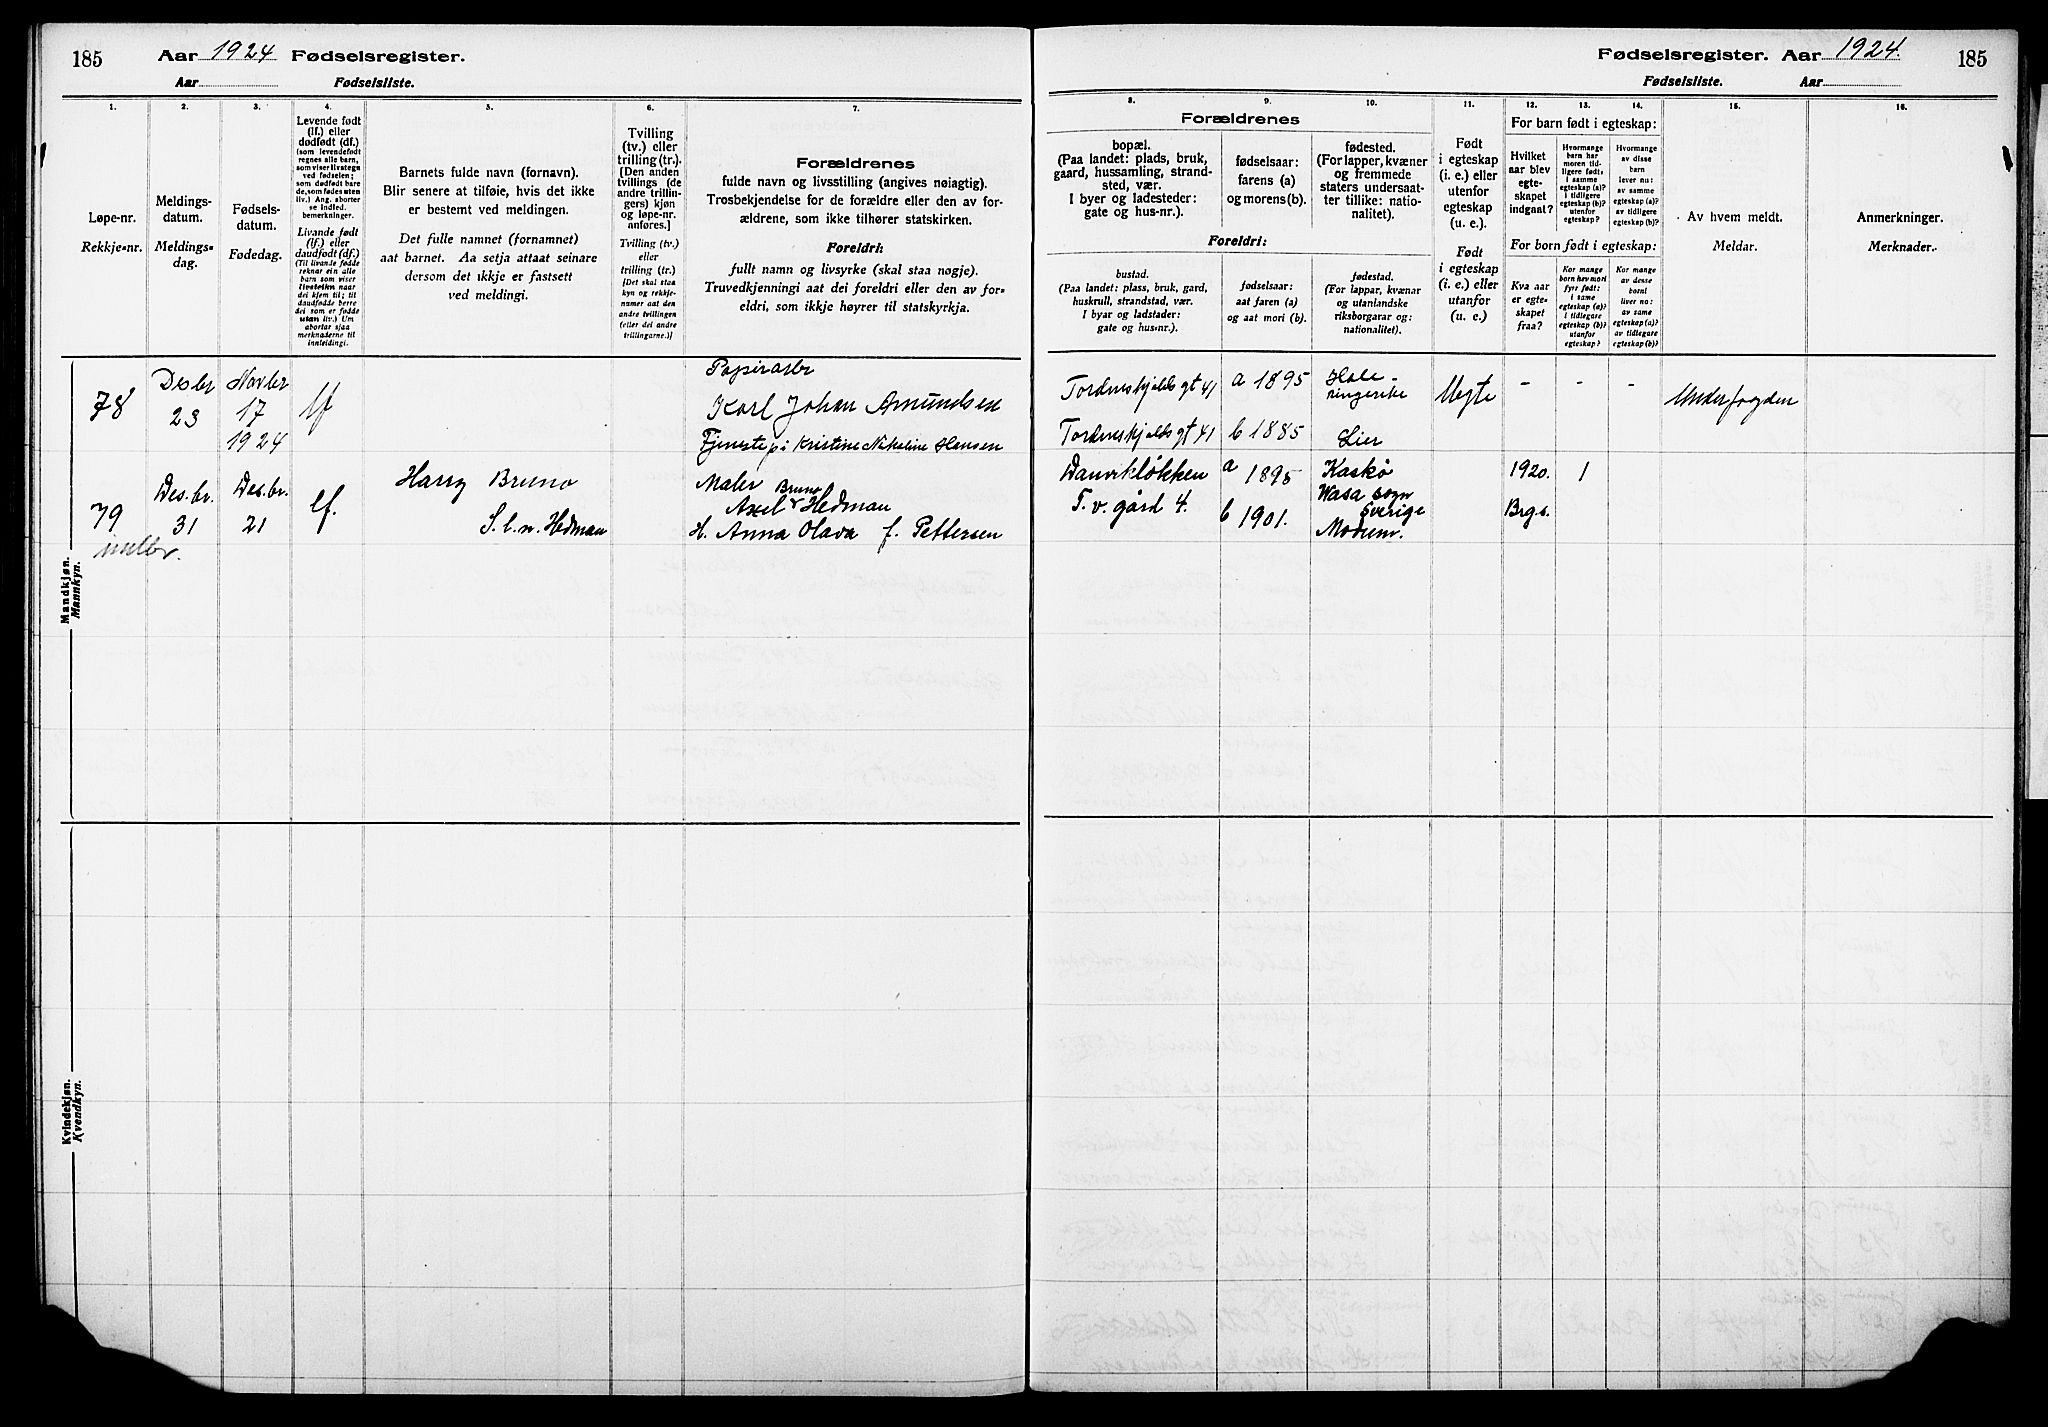 185
Aar 1924 Fødselsregister.
Aar Fødselsliste.
1.
2.
3.
4.
5.
6.
7.
Løpe-nr.
Rekkje-nr.
Meldings-
datum.
Meldings-
dag.
Fødsels-
datum.
Fødedag.
Levende født
(lf.) eller
dødfødt (df.)
(som levendefødt
regnes alle barn,
som viser livstegn
ved fødselen;
som dødfødt bare
de, som fødes uten
liv.) Ang. aborter
se indled.
bemerkninger.
Livande født
(lf.) eller
daudfødt (df.)
(Til livande fødde
reknar ein alle
barn som viser
livsteikn naar
dei kjem til; til
daudfødde berre
dei som er fødde
utan liv.) Um
abortar sjaa
merknaderne til
innleidingi.
Barnets fulde navn (fornavn).
Blir senere at tilføie, hvis det ikke
er bestemt ved meldingen.
Det fulle namnet (fornamnet)
aat barnet. Aa setja attaat seinare
dersom det ikkje er fastsett
ved meldingi.
Tvilling
(tv.) eller
trilling (tr.).
[Den anden
tvillings (de
andre trillin-
gers) kjøn
og løpe-nr.
anføres.]
Tvilling (tv.)
eller
trilling (tr.)
[Det skal staa
kyn og rekkje-
numer aat den
andre tvillingen
(eller dei andre
trillingarne.)]
Forældrenes
fulde navn og livsstilling (angives nøiagtig).
Trosbekjendelse for de forældre eller den av for-
ældrene, som ikke tilhører statskirken.
Foreldri:
fullt namn og livsyrke (skal staa nøgje).
Truvedkjenningi aat dei foreldri eller den av for-
eldri, som ikkje høyrer til statskyrkja.
Mandkjøn.
Mannkyn.
78
Desbr
23
Novbr
17
1924
lf
Papirarbr
Karl Johan Amundsen
Tjenestepi Kristine Nikoline Hansen
79
Des.br.
31
Des.br.
21
lf.
Harry Bruno
S. l. n. Hedman
Maler Bruno
Axel Hedman
H. Anna Olava f. Pettersen
Kvindekjøn.
Kvendkyn.
Fødselsregister. Aar 1924.
185
Fødselsliste. Aar
8.
9.
10.
11.
12.
13.
14.
15.
16.
Forældrenes
bopæl.
(Paa landet: plads, bruk,
gaard, hussamling, strand-
sted, vær.
I byer og ladesteder:
gate og hus-nr.).
fødselsaar:
farens (a)
og morens(b).
fødested.
(For lapper, kvæner
og fremmede
staters undersaat-
ter tillike: natio-
nalitet).
Foreldri:
bustad.
(Paa landet: plass, bruk, gard,
huskrull, strandstad, vær.
I byar og ladstader:
gate og hus-nr.).
fødselsaar:
aat faren (a)
og aat mori (b).
fødestad.
(For lappar, kvænar
og utanlandske
riksborgarar og:
nationalitet).
Født
i egteskap
(i. e.) eller
utenfor
egteskap
(u. e.).
Født
i egteskap
(i. e.) eller
utanfor
(u. e.)
For barn født i egteskap:
Hvilket
aar blev
egte-
skapet
indgaat?
Hvormange
barn har
moren tid-
ligere født:
i samme
egteskap (a)?
i tidligere
egteskap (b)?
utenfor
egteskap?
Hvormange
av disse
barn
lever nu:
av samme
egteskap (a)?
av tidligere
egteskap (b)?
For born født i egteskap:
Kva aar
er egte-
skapet
fraa?
Kor mange
born hev mori
fyrr født:
i same
egteskap (a)?
i tidlegare
egteskap (b)?
utanfor
egteskap?
Kor mange
av desse
borni
liver no:
av same
egteskap (a)?
av tidlegare
egteskap (b)?
Av hvem meldt.
Meldar.
Anmerkninger.
Merknader.
Tordenskjolds gt 41
a 1895
Hole -
ringerike
Uegte
-
-
-
Underfogden
Tordenskjolds gt 41
b 1885
Lier
Danvikløkken
T. v. gård 4.
a 1895
b 1901.
Kaskø
Wasa sogn
Sverige
Modum.
1920.
Brgs.
1